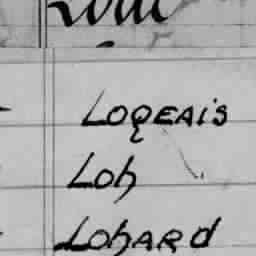 LOQEAiS
Loh
LohARd